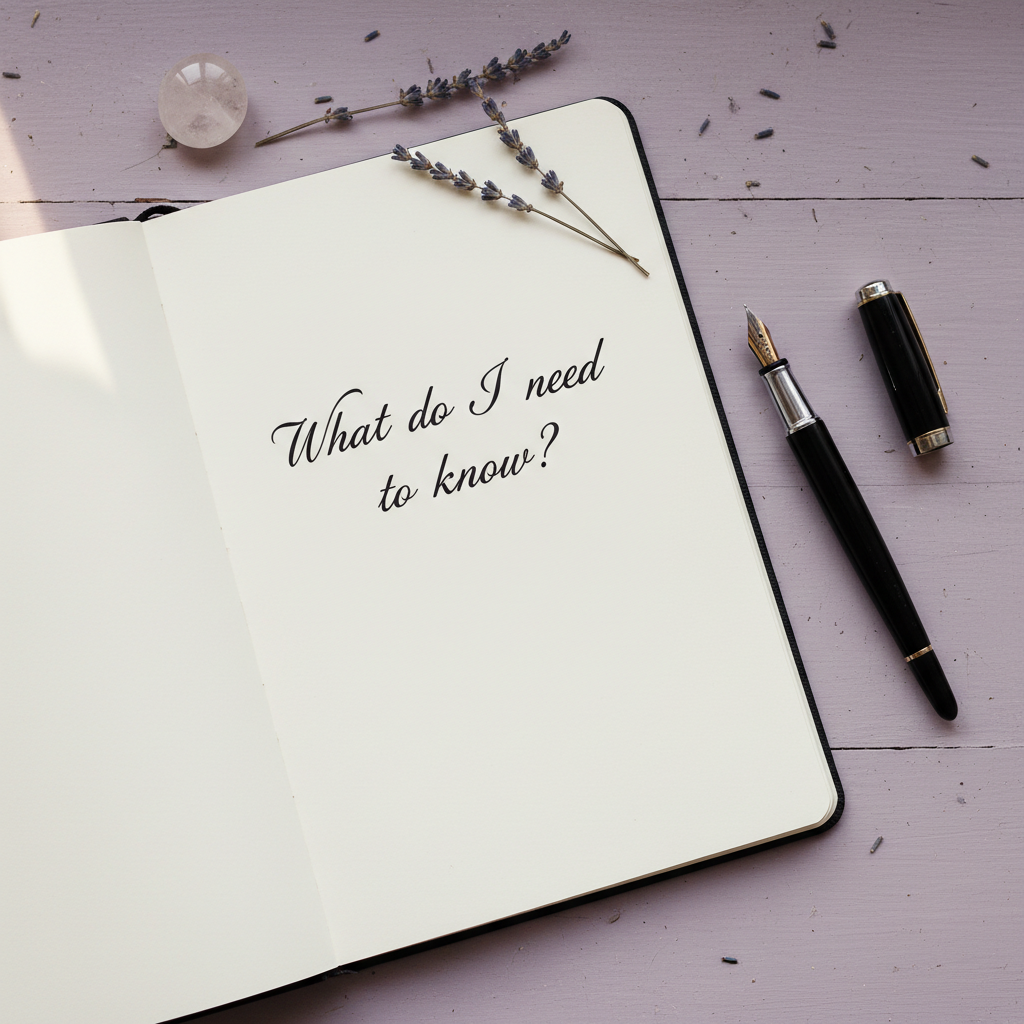 What do I need
to know?